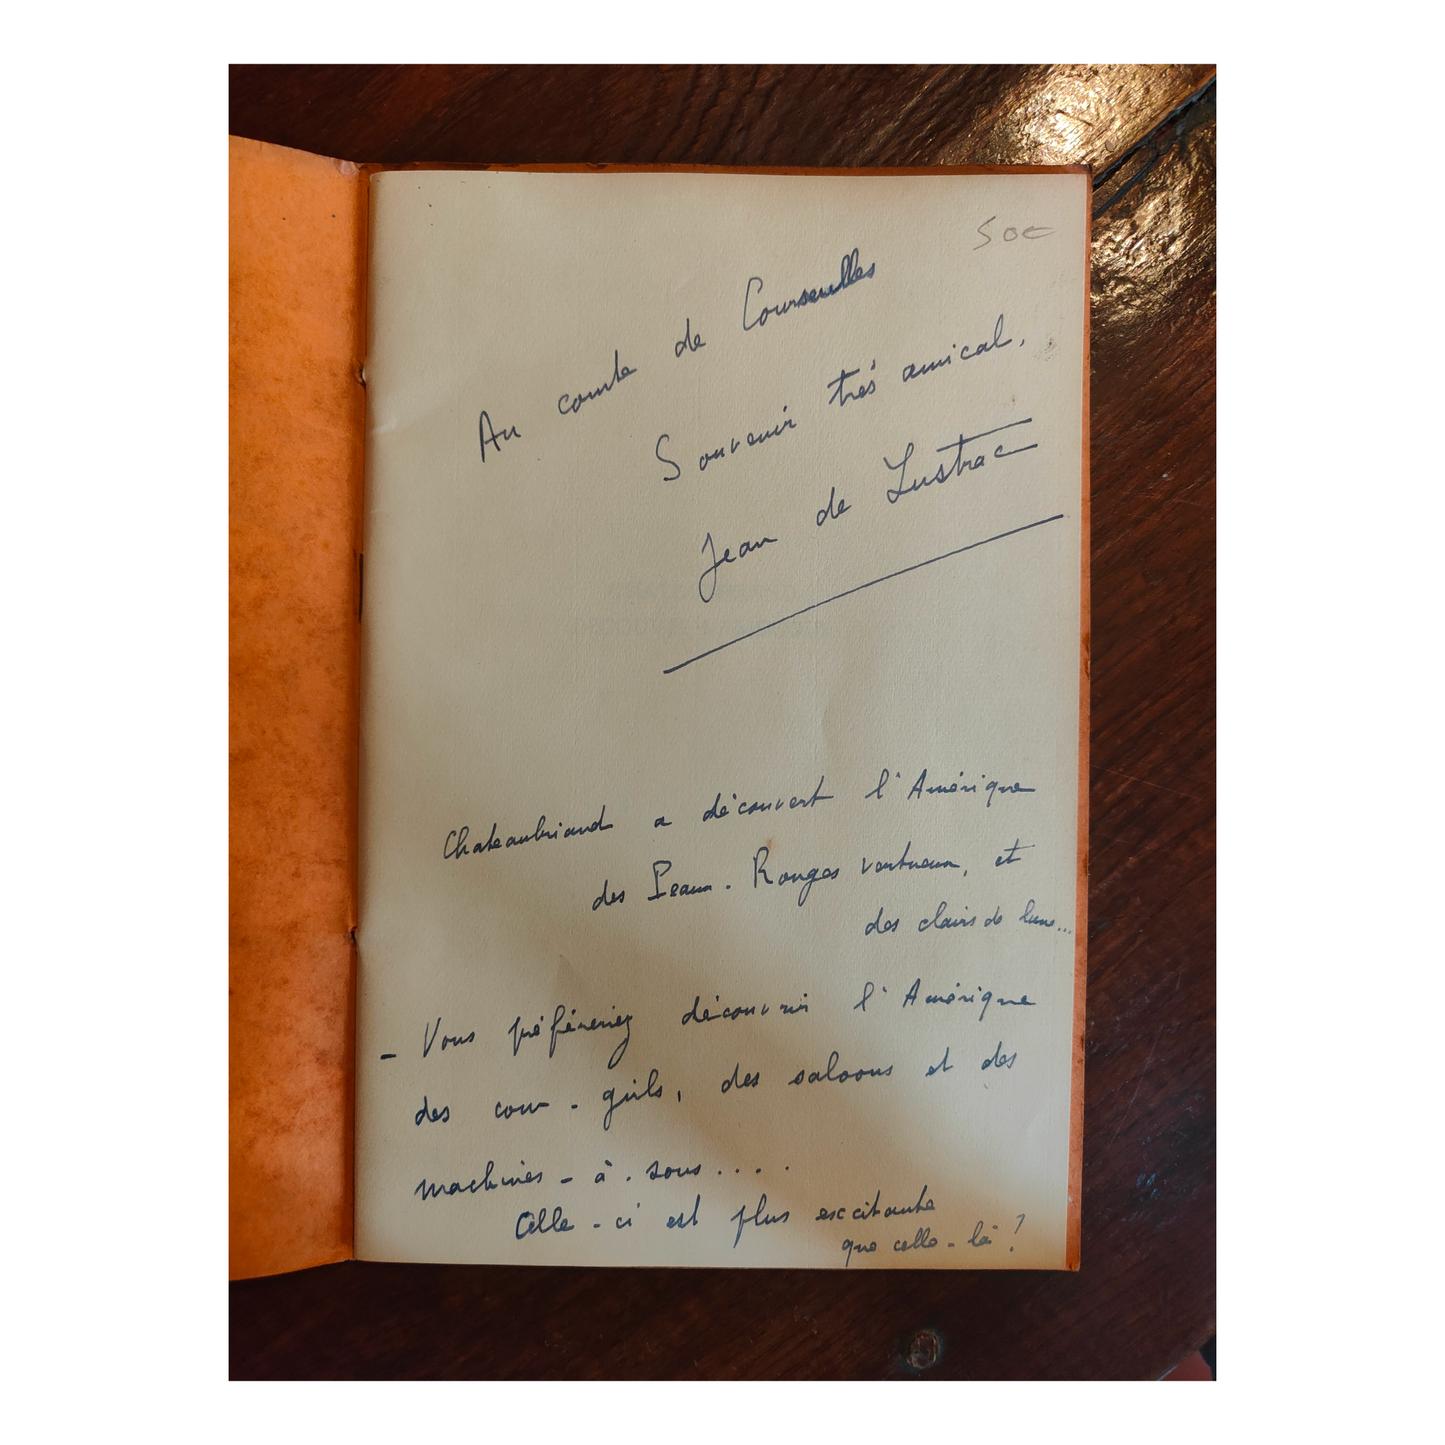 50€
Au comte de Courseulles
Souvenir très amical,
Jean de Lustrac
Chateaubriand a découvert l'Amérique
des Peaux-Rouges vertueux, et
des clairs de lune...
- Vous préféreriez découvrir l'Amérique
des cow-girls, des saloons et des
machines-à-sous....
Celle-ci est plus excitante
que celle-là ?